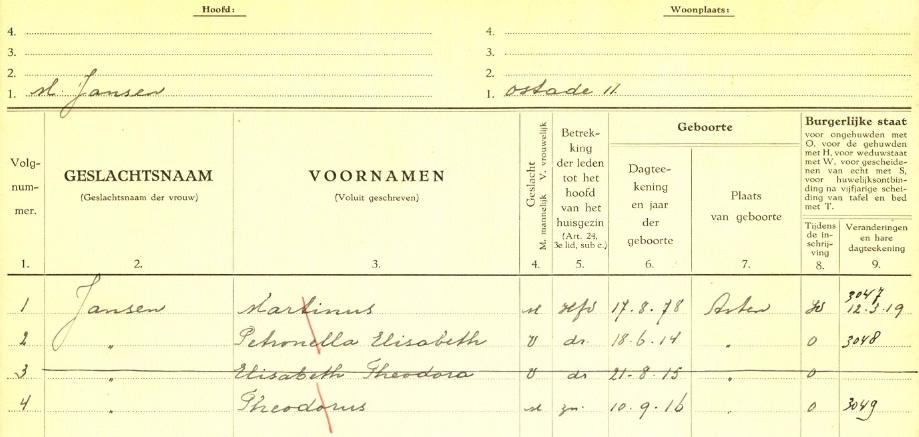 Hoofd: Woonplaats:
4. 4.
3. 3.
2. 2.
1. M. Jansen 1. Ostade 11
Volg-
num-
mer.
GESLACHTSNAAM
(Geslachtsnaam der vrouw)
VOORNAMEN
(Voluit geschreven)
Geslacht
M. mannelijk V. vrouwelijk
Betrek-
king
der leden
tot het
hoofd
van het
huisgezin
(Art. 24,
3e lid, sub c.)
Geboorte
Dagtee-
kening
en jaar
der
geboorte
Plaats
van geboorte
Burgerlijke staat
voor ongehuwden met
O, voor de gehuwden
met H, voor weduwstaat
met W, voor gescheide-
nen van echt met S,
voor huwelijksontbin-
ding na vijfjarige schei-
ding van tafel en bed
met T.
Tijdens
de in-
schrij-
ving
Veranderingen
en hare
dagteekening
1. 2. 3. 4. 5. 6. 7. 8. 9.
3047
1 Jansen Martinus M Hfd 17.8.78 Asten 12.3.19
2 „ Petronella Elisabeth V dr. 18.6.14 „ O 3048
3 „ Elisabeth Theodora V dr 21-8.15 „ O
4 „ Theodorus M zn. 10.9.16 „ O 3049